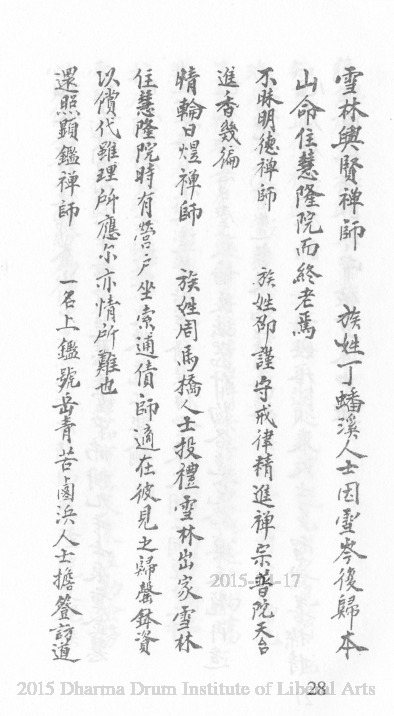 雪林興賢禪師 族姓丁蟠溪人士因雪岑後歸本
山命住慧隆院而終老焉
不昧明德禪師 族姓邵謹守戒律精進禪宗普院天台
進香幾徧
晴輪日煜禪師 族姓周馬橋人士投禮雪林出家雪林
住慧隆院時有營戶坐索逋債師適在彼見之歸罄鉢資
以償代雖理所應尔亦情所難也
還照顯鑑禪師 一名上鑑號岳青苦鹵浜人士擔簦訪道
2015-04-17
28
2015 Dharma Drum Institute of Liberal Arts